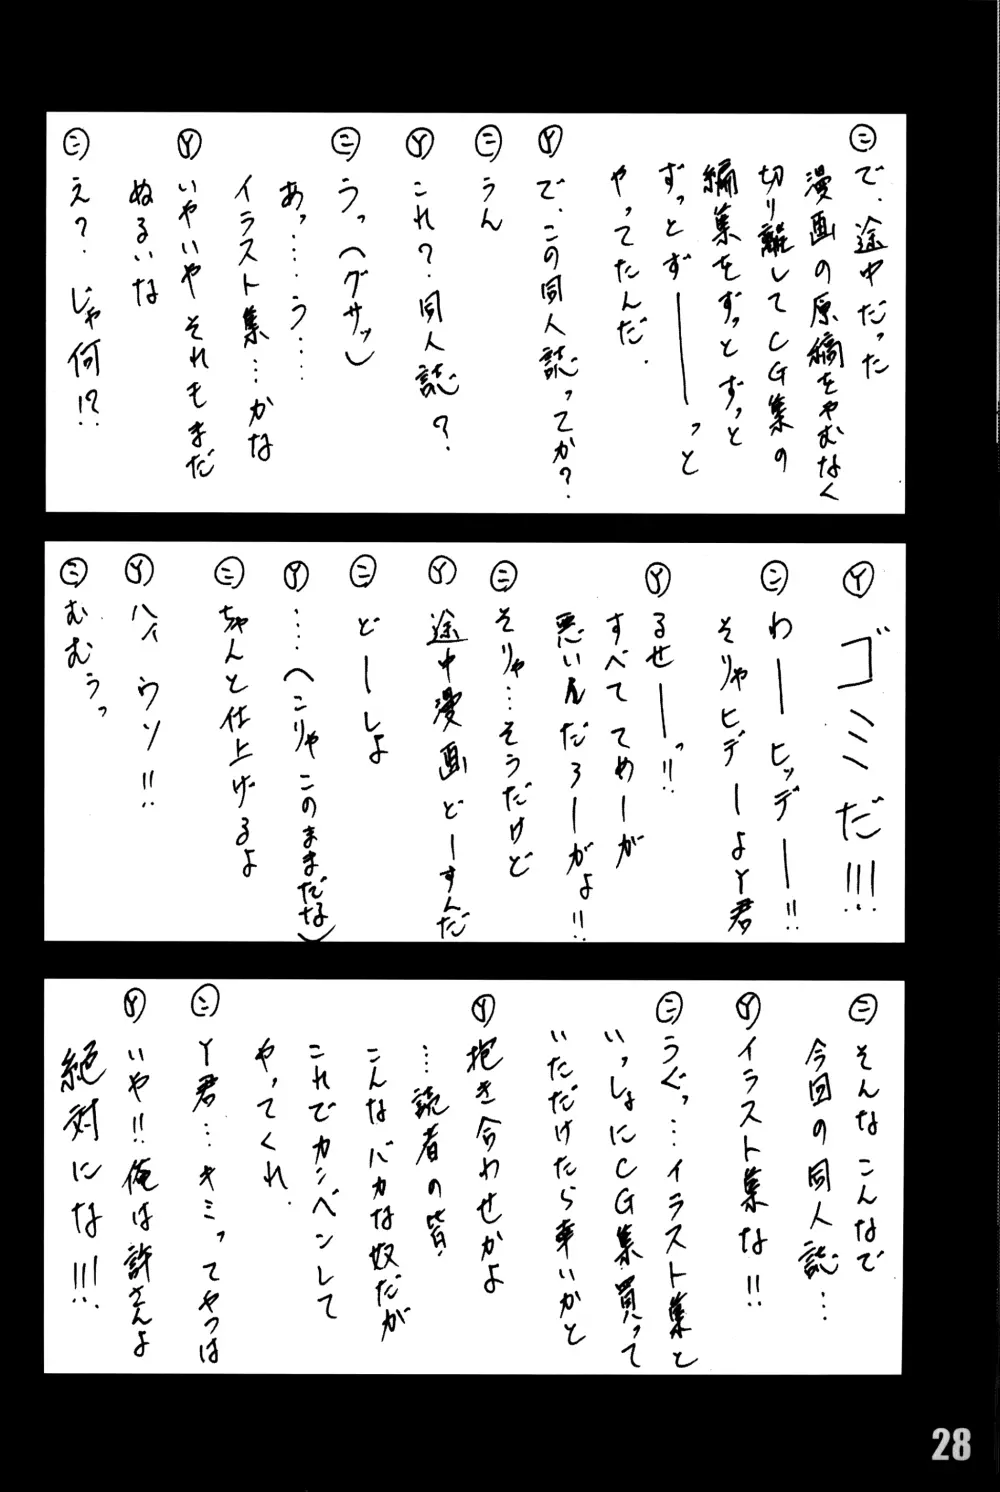 ㊁で、途中だった
漫画の原稿をやむなく
切り離してCG集の
編集をずっとずっと
ずっとずーーーっと
やってたんだ.
Ⓨで、この同人誌ってか?
㊁うん
Ⓨこれ?同人誌?
㊁うっ(グサッ)
あっ……う……
イラスト集…かな
Ⓨいやいやそれもまだ
ぬるいな
㊁え?じゃ何!?
Ⓨゴミだ!!!
㊁わーーヒッデー!!
そりゃヒデーよY君
Ⓨるせーーっ!!
すべててめーが
悪いんだろーがよ!!
㊁そりゃ…そうだけど
Ⓨ途中漫画どーすんだ
㊁どーしよ
Ⓨ……(こりゃこのままだな)
㊁ちゃんと仕上げるよ
Ⓨハイウソ!!
㊁むむうっ
㊁そんなこんなで
今回の同人誌…
Ⓨイラスト集な!!
㊁うぐっ…イラスト集と
いっしょにCG集買って
いただけたら幸いかと
Ⓨ抱き合わせかよ
…読者の皆.
こんなバカな奴だが
これでカンベンして
やってくれ.
㊁Y君…キミってやつは
Ⓨいや!!俺は許さんよ
絶対にな!!!
28